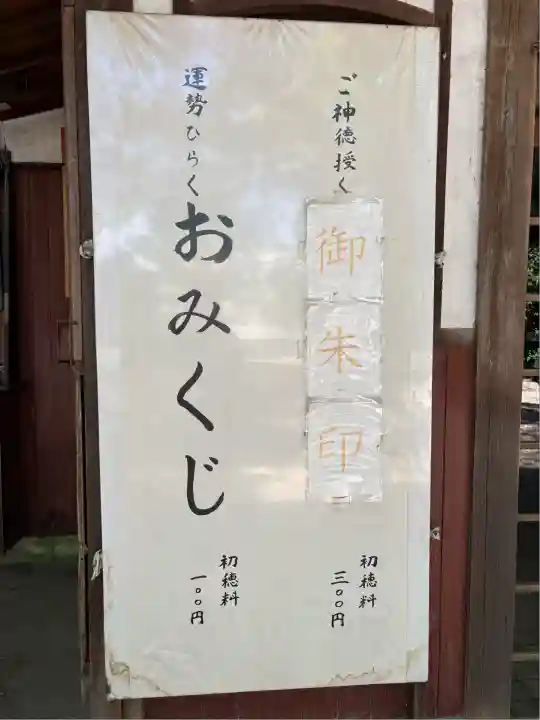 ご神徳授く
御朱印
初穂料
三〇〇円
運勢ひらく
おみくじ
初穂料
一〇〇円